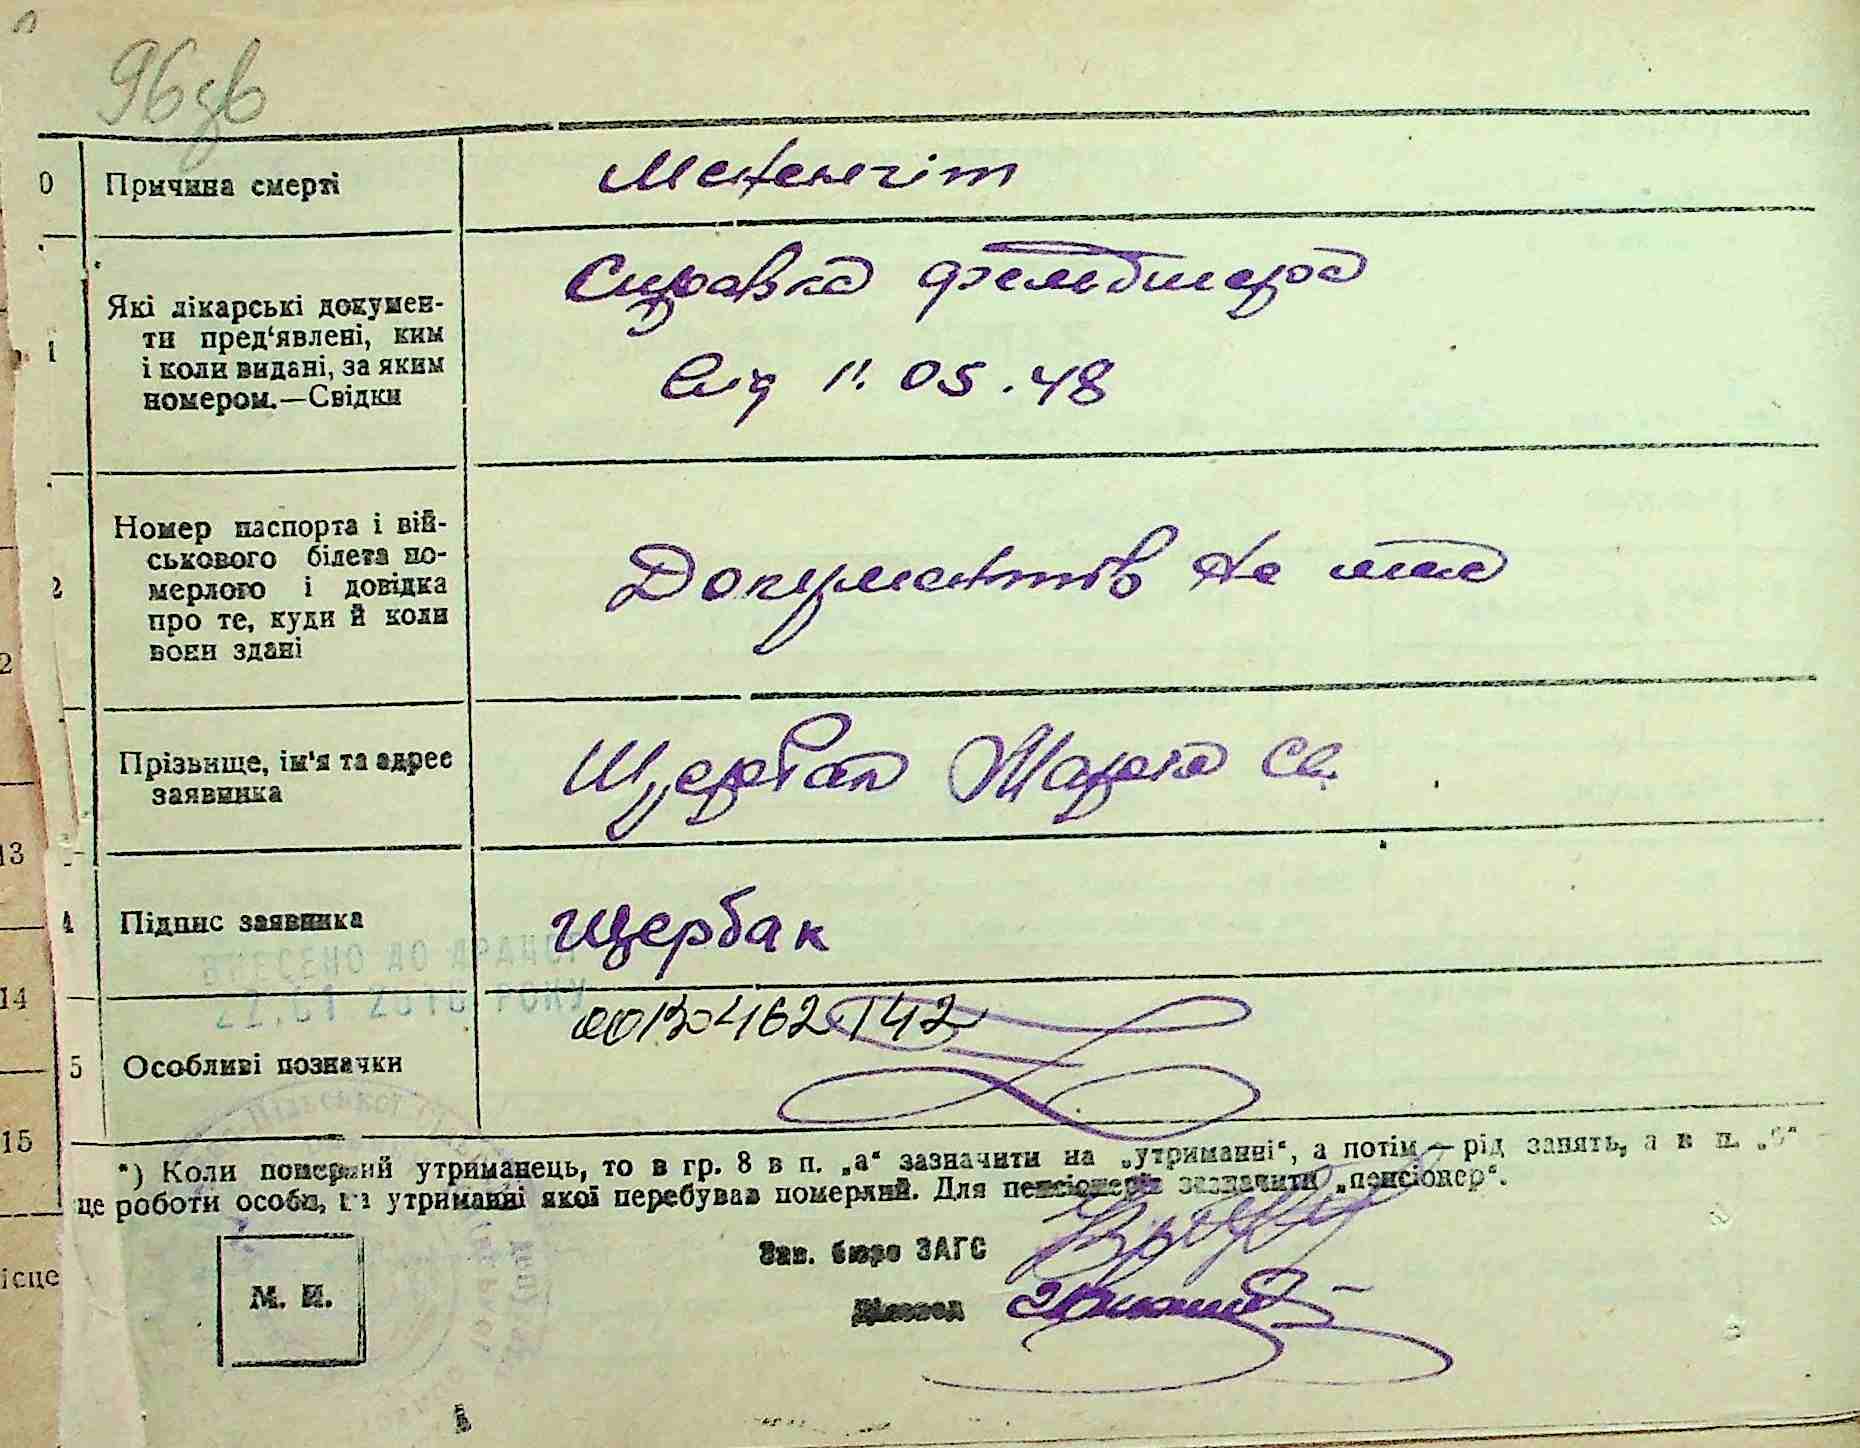 96зв
0 Причина смерті Мененгіт
1 Які лікарські докумен-
ти пред‘явлені, ким
і коли видані, за яким
номером.—Свідки
Справка фельдшера
Від 11.05.48
2 Номер паспорта і вій-
ськового білета по-
мерлого і довідка
про те, куди й коли
вони здані
Документів не має
Прізвище, ім'я та адрес
заявника
Щербак Марія
4 Підпис заявника Щербак
ВНЕСЕНО ДО ДРАЦСГ
22.01 2010 РОКУ
00130462142
5 Особливі позначки
*) Коли померлий утриманець, то в гр. 8 в п. „а“ зазначити на „утриманні“, а потім — рід занять, а в п. „б“
це роботи особи, на утриманні якої перебував померлий. Для пенсіонерів зазначити „пенсіонер“.
Зав. бюро ЗАГС
Діловод
М. П.
2
13
14
15
ісце